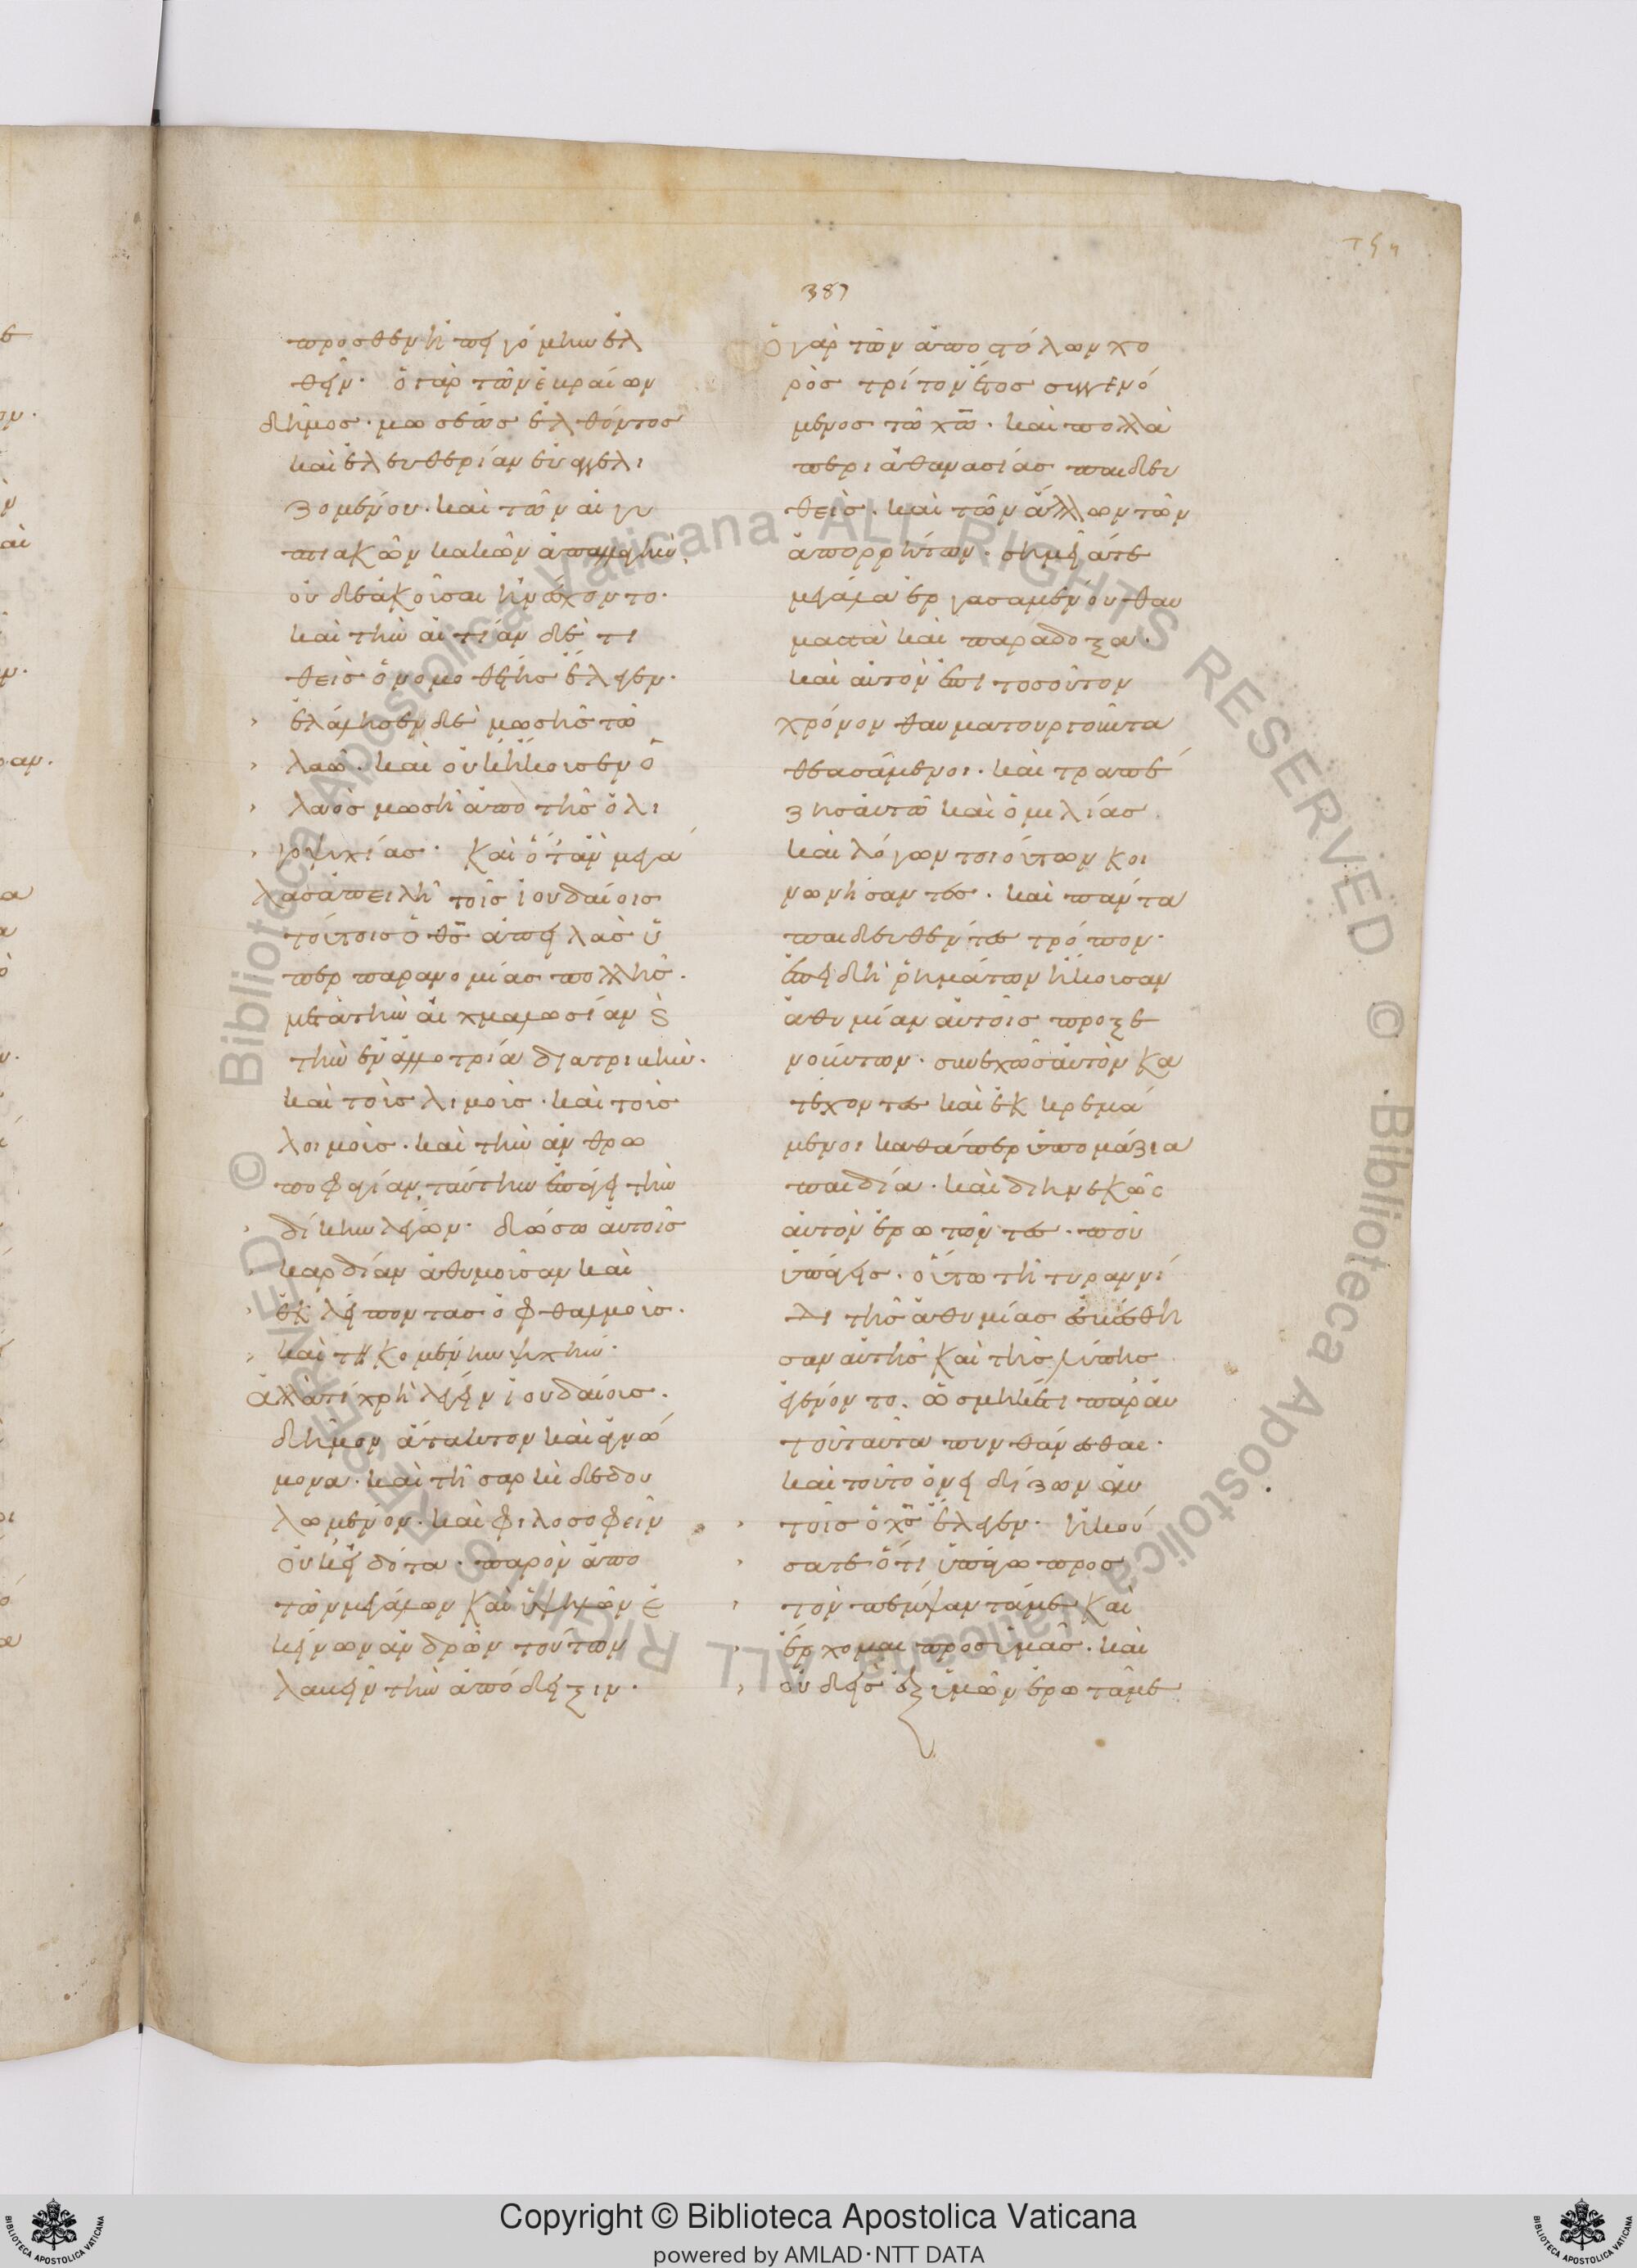 387
προσθεῖναι ἐπειγόμην ἐλ
θεῖν. ὁ γὰρ τῶν ἑβραίων
δῆμος. μωσέως ἐλθόντος
καὶ ἐλευθερίαν εὐαγγελι
ζομένου. καὶ τῶν αἰγυ
πτιακῶν κακῶν ἀπαλλαγὴν.
οὐδὲ ἀκοῦσαι ἠνείχοντο.
καὶ τὴν αἰτίαν δὲ τι
θεὶς ὁ νομοθέτης ἔλεγεν.
ἐλάλησεν δὲ μωσῆς τῶ
λαῶ. καὶ οὐκ ἤκουσεν ὁ
λαὸς μωσῆ ἀπὸ τῆς ὀλι
γοψυχίας. Καὶ ὅταν μεγά
λας ἀπειλῆ τοῖς ἰουδαίοις
τούτοις ὁ θς ἀπειλὰς ὑ
περ παρανομίας πολλῆς.
μετὰ τὴν αἰχμαλωσίαν κ
τὴν ἐν ἀλλοτρία διατριβὴν.
καὶ τοῖς λιμοῖς. καὶ τοῖς
λοιμοῖς. καὶ τὴν ἀνθρω
ποφαγίαν ταύτην ἐπάγει τὴν
δίκην λέγων. δώσω αὐτοῖς
καρδίαν ἀθυμοῦσαν καὶ
ἐκλείποντας ὀφθαλμοὺς.
καὶ τηκομένην ψυχὴν.
ἀλλὰ τί χρὴ λέγειν ἰουδαίους.
δῆμον ἄτακτον καὶ ἀγνώ
μονα. καὶ τῆ σαρκὶ δεδου
λωμένον. καὶ φιλοσοφεῖν
οὐκ εἰδότα. παρὸν ἀπὸ
τῶν μεγάλων καὶ ὑψηλῶν ἐ
κείνων ἀνδρῶν τούτων
λαβεῖν τὴν ἀπόδειξιν.
Ὁ γὰρ τῶν ἀποστόλων χο
ρὸς τρίτον ἔτος συγγενό
μενος τῶ χω. καὶ πολλὰ
περὶ ἀθανασίας παιδευ
θεὶς. καὶ τῶν ἄλλων τῶν
ἀπορρήτων. σημεῖά τε
μεγάλα ἐργασαμένου θαυ
μαστὰ καὶ παράδοξα.
καὶ αὐτὸν ἐπὶ τοσοῦτον
χρόνον θαυματουργοῦντα
θεασάμενοι. καὶ τραπέ
ζης αὐτῶ καὶ ὁμιλίας
καὶ λόγων τοιούτων κοι
νωνήσαντες. καὶ πάντα
παιδευθέντες τρόπον.
ἐπειδὴ ῥημάτων ἤκουσαν
ἀθυμίαν αὐτοῖς προξε
νούντων. συνεχῶς αὐτὸν κα
τέχοντες καὶ ἐκκρεμά
μενοι καθάπερ ὑπομάζια
παιδία. καὶ διηνεκῶς
αὐτὸν ἐρωτῶντες. ποῦ
ὑπάγεις. οὕτω τῆ τυραννί
δι τῆς ἀθυμίας ἐπιέσθη
σαν αὐτῆς καὶ τῆς λύπης
ἐγένοντο. ὡς μηκέτι παρ' αὐ
τοῦ ταῦτα πυνθάνεσθαι.
καὶ τοῦτο ὀνειδίζων αὐ
τοῖς ὁ χς ἔλεγεν. ἠκού
σατε ὅτι ὑπάγω πρὸς
τὸν πέμψαντά με καὶ
ἔρχομαι πρὸς ὑμᾶς. καὶ
οὐδεὶς ἐξ ὑμῶν ἐρωτᾶ με